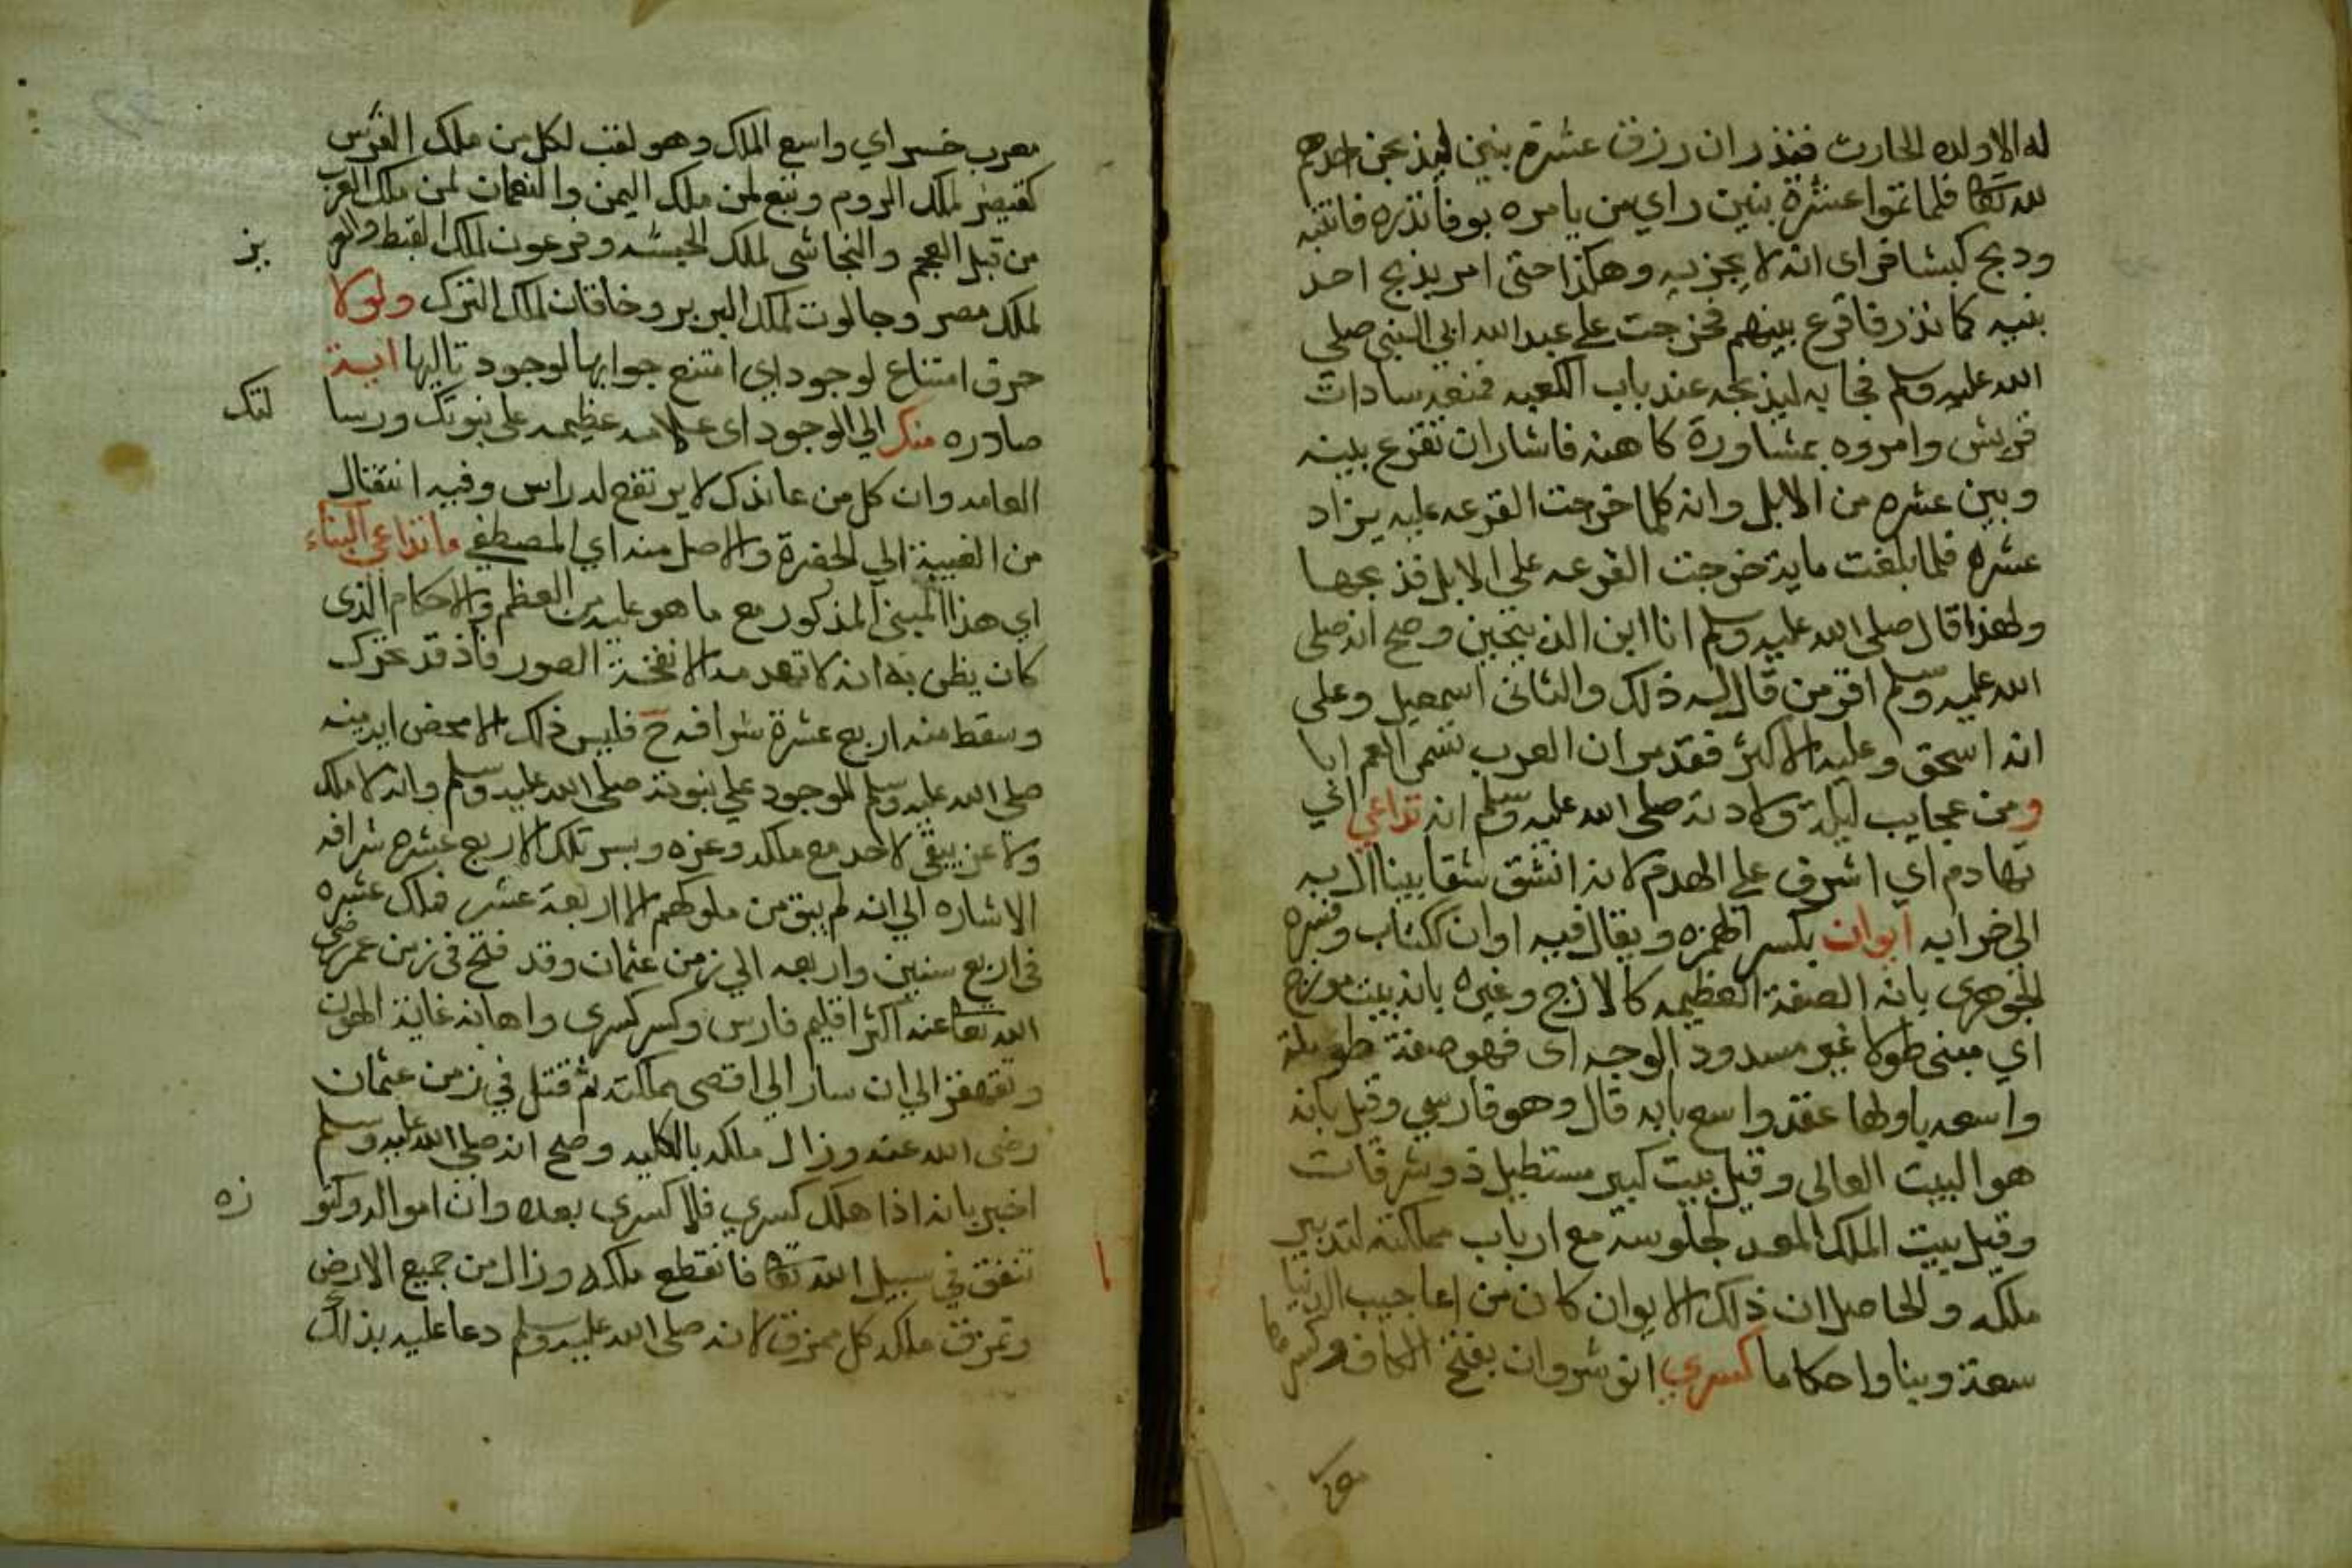 له الا ولده الحارث فنذر ان رزق عشرة بنين ليذبحن احدهم
لله تعالى فلما تموا عشرة بنين راي من يامره بوفا نذره فانتبه
وذبح كبشا فراى انه لا يجزيه وهكذا حتى امر بذبح احد
بنيه كما نذر فاقرع بينهم فخرجت على عبد الله ابي النبي صلي
الله عليه وسلم فجا به ليذبحه عند باب الكعبه فمنعه سادات
قريش وامروه بمشاورة كاهنه فاشار ان تقرع بينه
وبين عشره من الابل وانه كلما خرجت القرعه عليه يزاد
عشره فلما بلغت ماية خرجت القرعه على الابل فذبحها
ولهذا قال صلى الله عليه وسلم انا ابن الذبيحين وصح انه صلى
الله عليه وسلم اقر من قال له ذلك والثانى اسمعيل وعلى
انه اسحق وعليه الاكثر فقد مر ان العرب تسمى العم ابا
ومن عجايب ليلة ولادته صلى الله عليه وسلم انه تداعي اي
تهادم اي اشرف على الهدم لانه انشق شقا بينا ال به
الى خرابه ايوان بكسر الهمزه ويقال فيه اوان ككتاب وفسره
الجوهرى بانه الصفة العظيمه كالازج وغيره بانه بيت مورج
اي مبنى طولا غير مسدود الوجه اى فهو صفة طويلة
واسعه باولها عقد واسع بابه قال وهو فارسي وقيل بانه
هو البيت العالى وقيل بيت كبير مستطيل ذو شرفات
وقيل بيت الملك المعد لجلوسه مع ارباب مملكته لتدبير
ملكه والحاصل ان ذلك الايوان كان من اعاجيب الدنيا
سعة وبنا واحكاما كسري انوشروان بفتح الكاف وكسرها
معرب
معرب خسر اي واسع الملك وهو لقب لكل من ملك الفرس
كقيصر لملك الروم وتبع لمن ملك اليمن والنعمان لمن ملك العرب
من قبل العجم والنجاشى لملك الحبشه وفرعون لملك القبط والعز
يز
لملك مصر وجالوت لملك البربر وخاقان لملك الترك ولولا
حرف امتناع لوجود اي امتنع جوابها لوجود تاليها اية
صادره منك الي الوجود اى علامه عظيمه على نبوتك ورسا
لتك
العامه وان كل من عاندك لا يرتفع له راس وفيه انتقال
من الغيبة الي الحضرة والاصل منه اي المصطفي ما تداعي البناء
اي هذا المبنى المذكور مع ما هو عليه من العظم والاحكام الذى
كان يظن به انه لا تهدمه الا نفخة الصور فاذ قد تحرك
وسقط منه اربع عشرة شرافه ح فليس ذلك الا محض اية منه
صلى الله عليه وسلم للموجود على نبوته صلى الله عليه وسلم وانه لا ملك
ولا عز يبقى لاحد مع ملكه وعزه وبسر تلك الاربع عشره شرافه
الاشاره الي انه لم يبق من ملوكهم الا اربعة عشر فملك عشره
فى اربع سنين واربعه الي زمن عثمان وقد فتح فى زمن عمر رضى
الله تعالى عنه اكثر اقليم فارس وكسر كسرى واهانه غاية الهوان
وتقهقر الي ان سار الى اقصى مملكته ثم قتل في زمن عثمان
رضى الله عنه وزال ملكه بالكليه وصح انه صلى الله عليه وسلم
اخبر بانه اذا هلك كسري فلا كسرى بعده وان امواله وكنو
زه
تنفق في سبيل الله تعالى فانقطع ملكه وزال من جميع الارض
وتمزق ملكه كل ممزق لانه صلى الله عليه وسلم دعا عليه بذلك